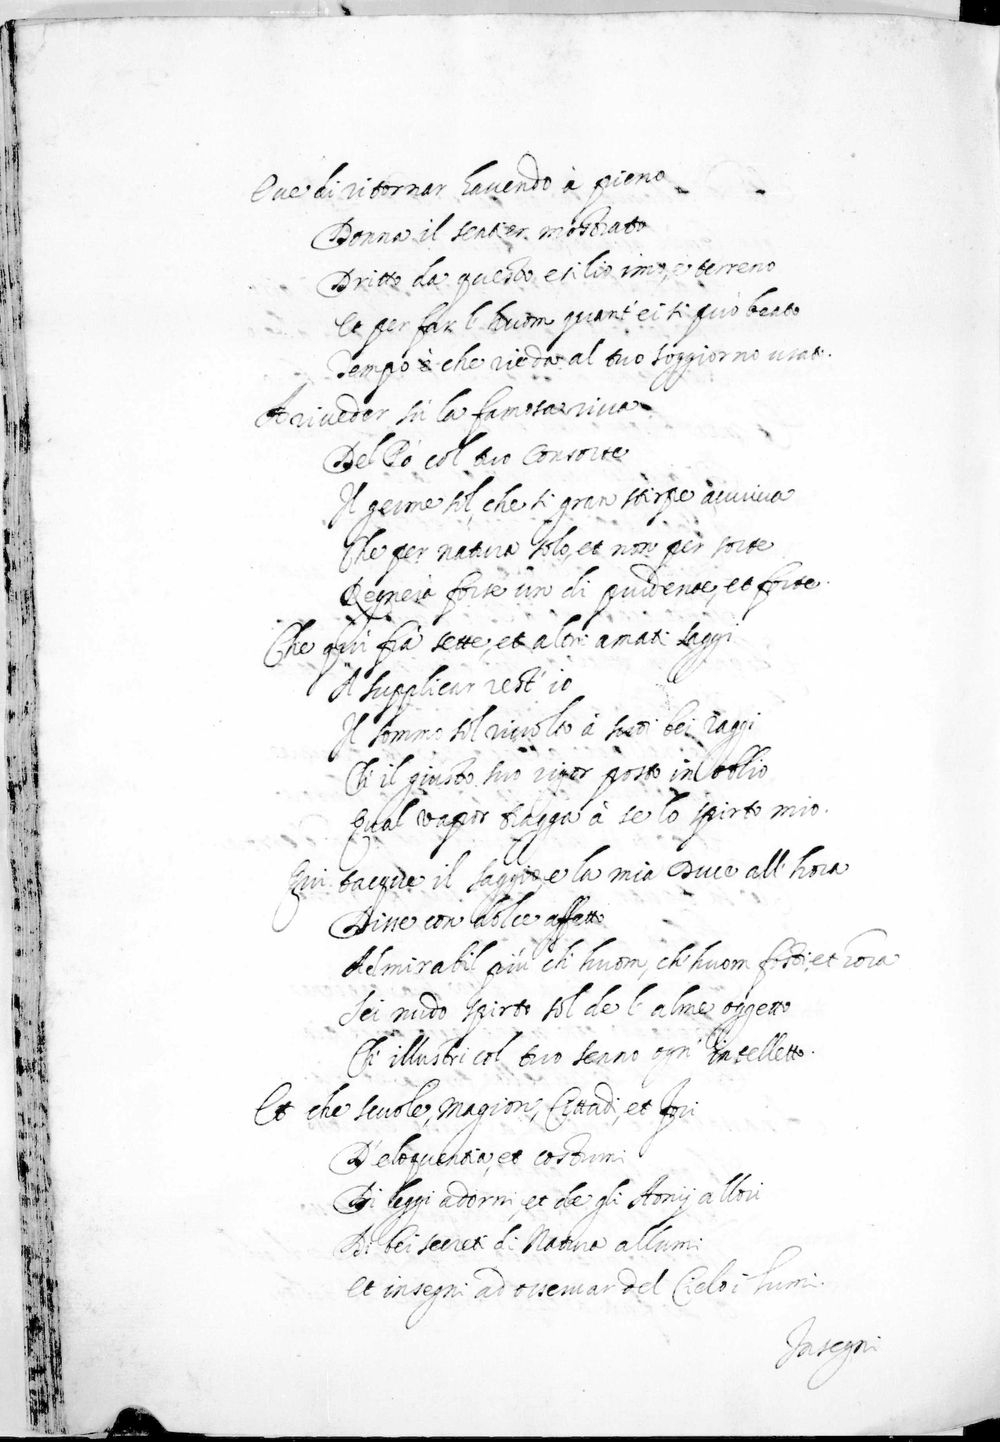 Que di ritornar havendo à pieno
Donna il sentier mostrato
Dritto da questo esilio imo, e terreno
Et per far l'huom quant'ei si può beato
Tempo è che rieda al tuo soggiorno usat.
A riveder sù la famosa riva
Del Pò col tuo Consorte
Il germe sol, che si gran stirpe avviva
Che per natura solo, et non per sorte
Regnerà forse un di prudente, et forte.
Che quì frà sette, et altri amati saggi
A supplicar rest'io
Il sommo sol rivolto à suoi bei raggi
Ch'il giusto suo rigor posto in oblio
Qual vapor tragga à se lo spirto mio.
Qui tacque il saggio, e la mia Duce all'hora
Disse con dolce affetto
Admirabil più ch'huom, ch'huom fosti, et hora
Sei nudo spirto sol de l'alme oggetto
Ch'illustri col tuo senno ogn'intelletto.
Et che scuole, magion, Cittadi, et fori
D'eloquentia, et costumi
Di leggi adorni, et de gli Aonij allori
Di bei secreti di Natura allumi
Et insegni ad osservar del Cielo i lumi.
Insegni